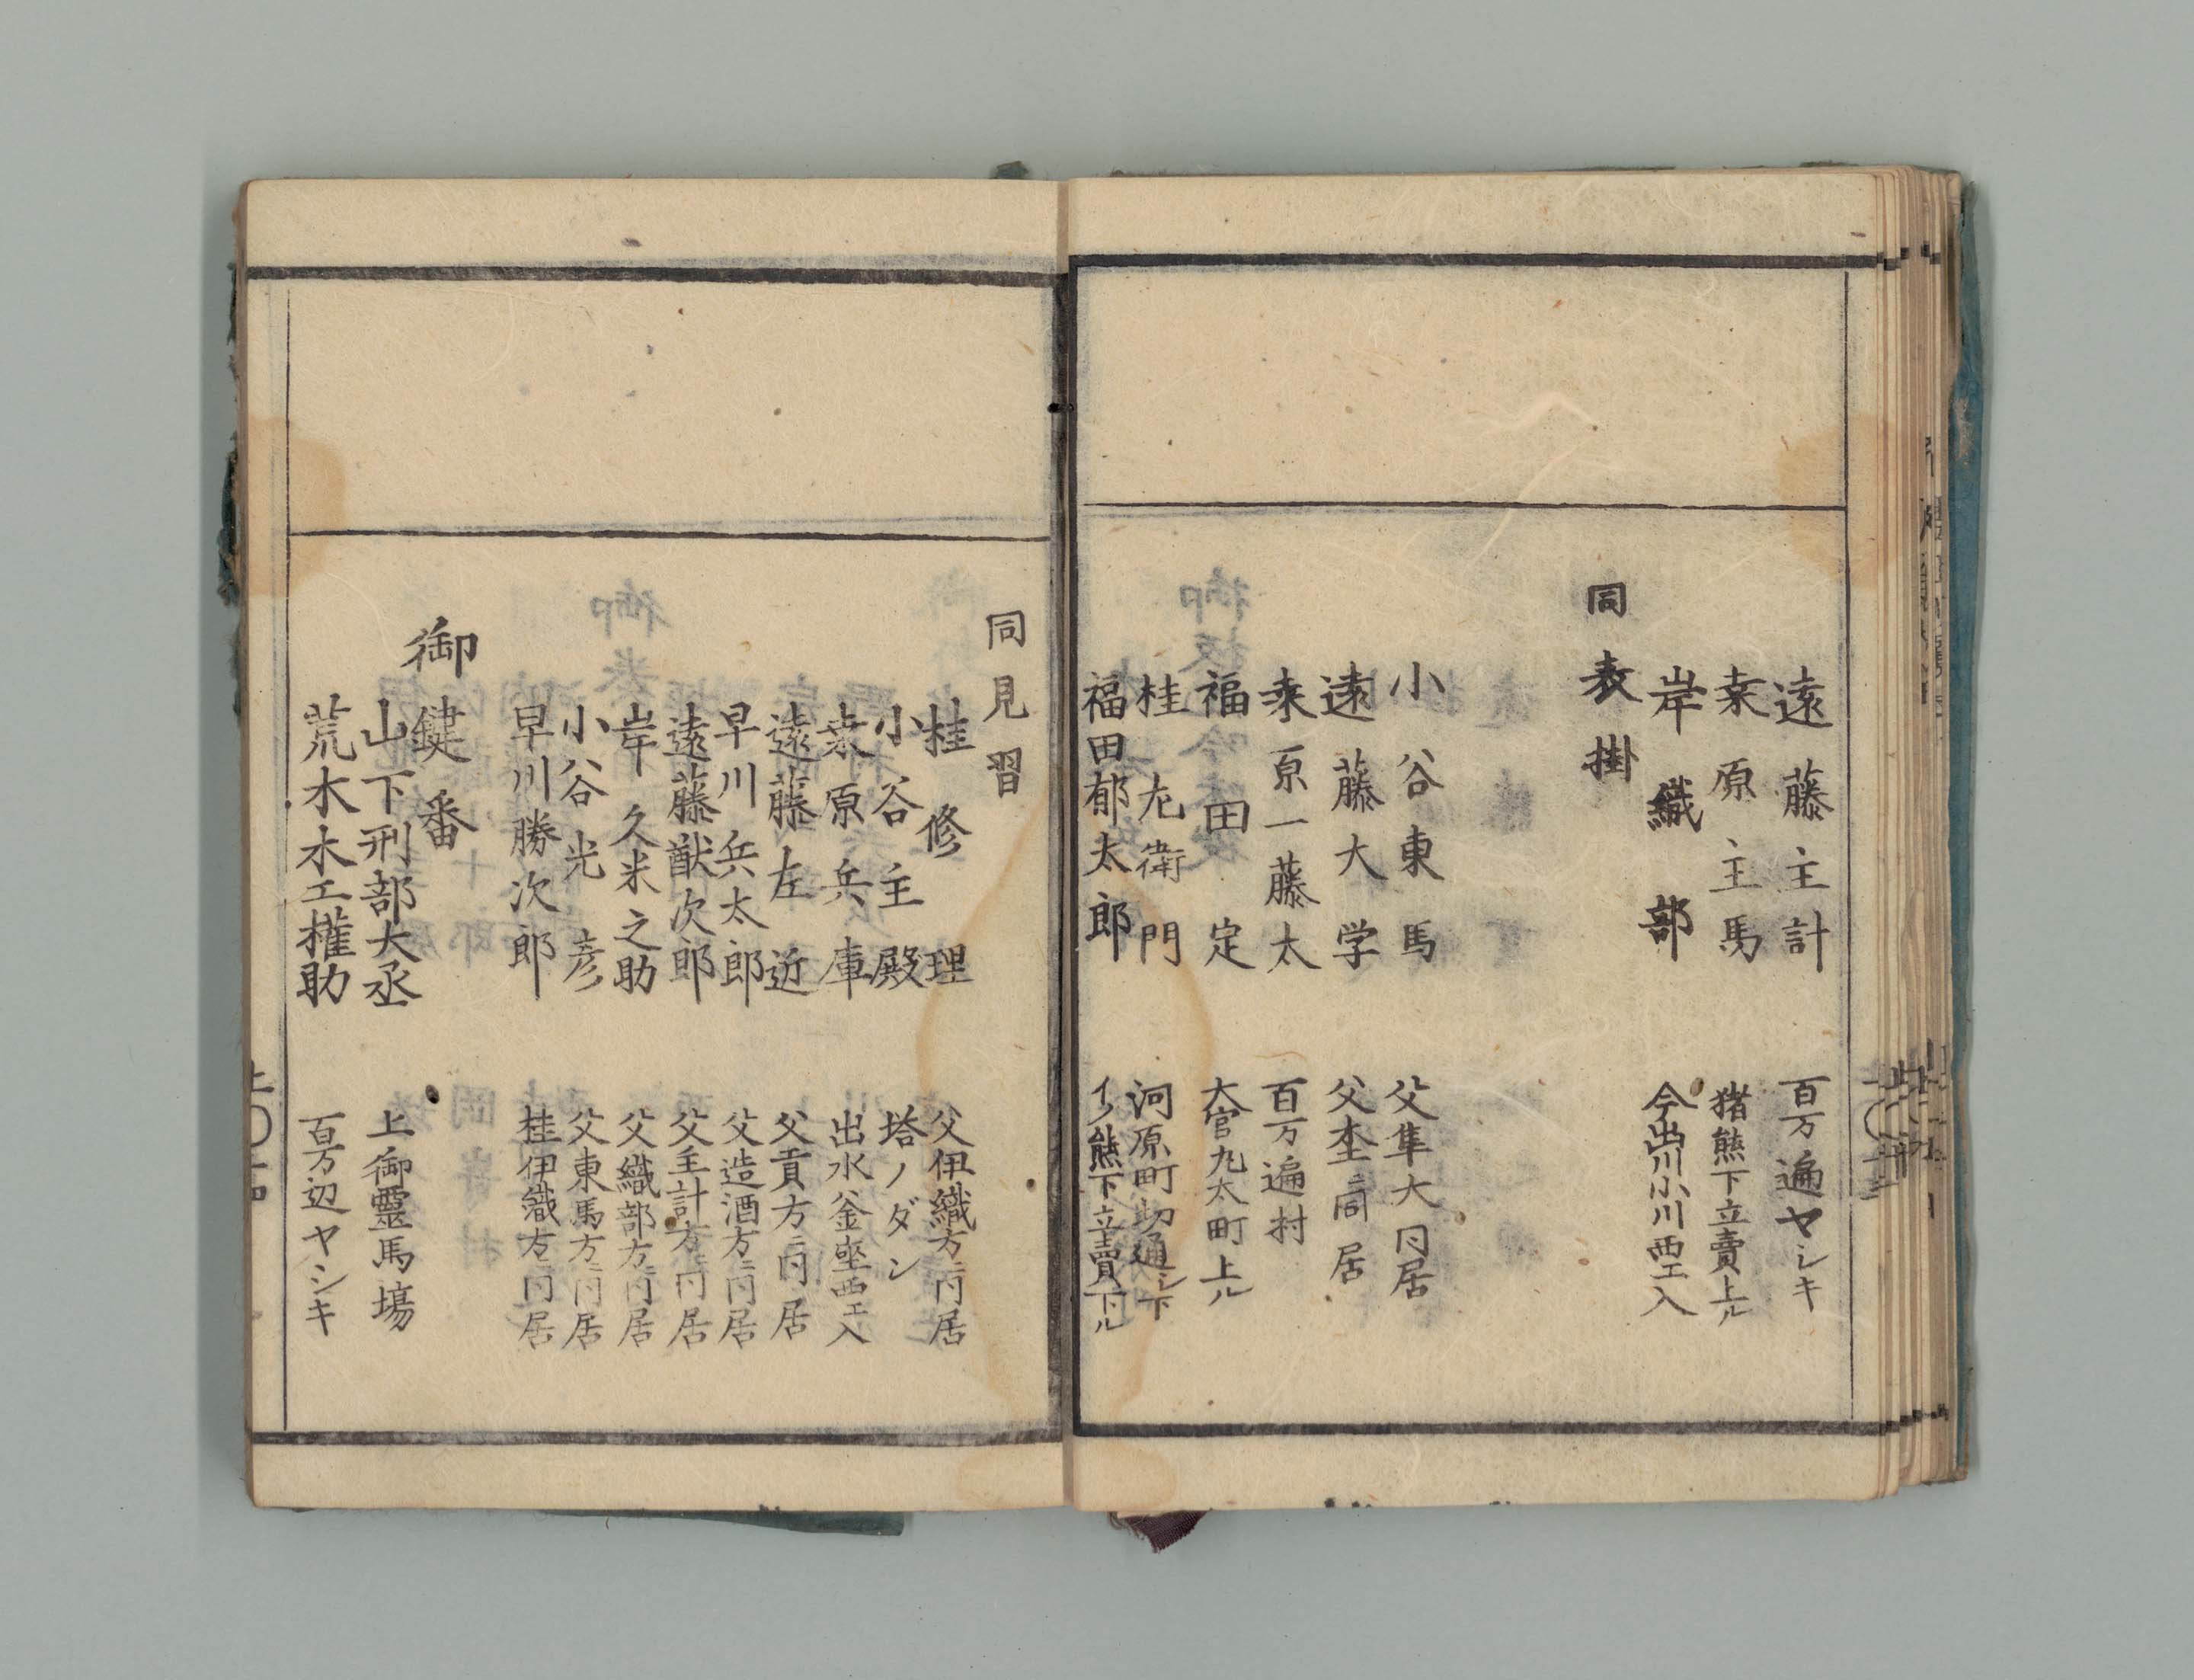 遠藤主計　百万遍ヤシキ
桒原主馬　猪熊下立賣上ル
岸織部　今出川小川西エ入
同表掛
小谷東馬　父隼大同居
遠藤大学　父杢ニ同居
桒原一藤太　百万遍村
福田定　大宮丸太町上ル
桂左衛門　河原町切通シ下
福田郁太郎　イノ熊下立賣下ル
同見習
桂修理　父伊織方ニ同居
小谷主殿　塔ノダン
桒原兵庫　出水釜座西エ入
遠藤左近　父貢方ニ同居
早川兵太郎　父造酒方ニ同居
遠藤猷次郎　父主計方ニ同居
岸久米之助　父織部方ニ同居
小谷光彦　父東馬方ニ同居
早川勝次郎　桂伊織方ニ同居
御鍵番
山下刑部大丞　上御霊馬場
荒木木工權助　百万辺ヤシキ